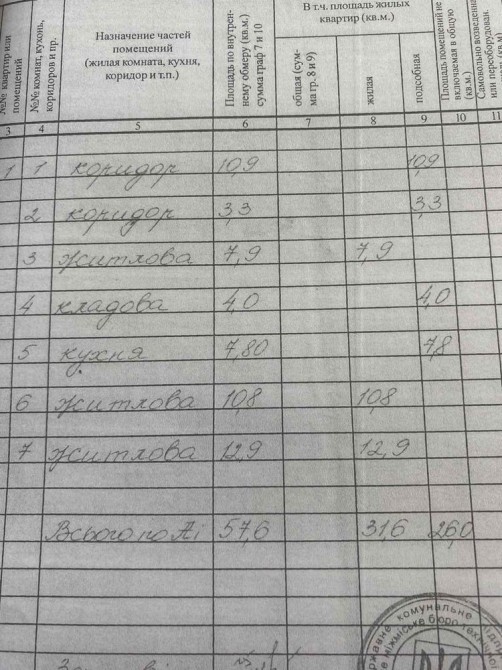 В т.ч. площадь жилых
квартир (кв.м.)
№№ квартир или
помещений
№№ комнат, кухонь,
коридоров и пр.
Назначение частей
помещений
(жилая комната, кухня,
коридор и т.п.)
Площадь по внутрен-
нему обмеру (кв.м.)
сумма граф 7 и 10
общая (сум-
ма гр. 8 и 9)
жилая
подсобная
Площадь помещений не
включаемая в общую
(кв.м.)
Самовольно возведенная
или переоборудован.
3 4 5 6 7 8 9 10 11
1 1 коридор 10,9 10,9
2 коридор 3,3 3,3
3 житлова 7,9 7,9
4 кладова 4,0 4,0
5 кухня 7,80 7,8
6 житлова 10,8 10,8
7 житлова 12,9 12,9
Всього по Аі 57,6 31,6 26,0
комунальне
міжміське бюро